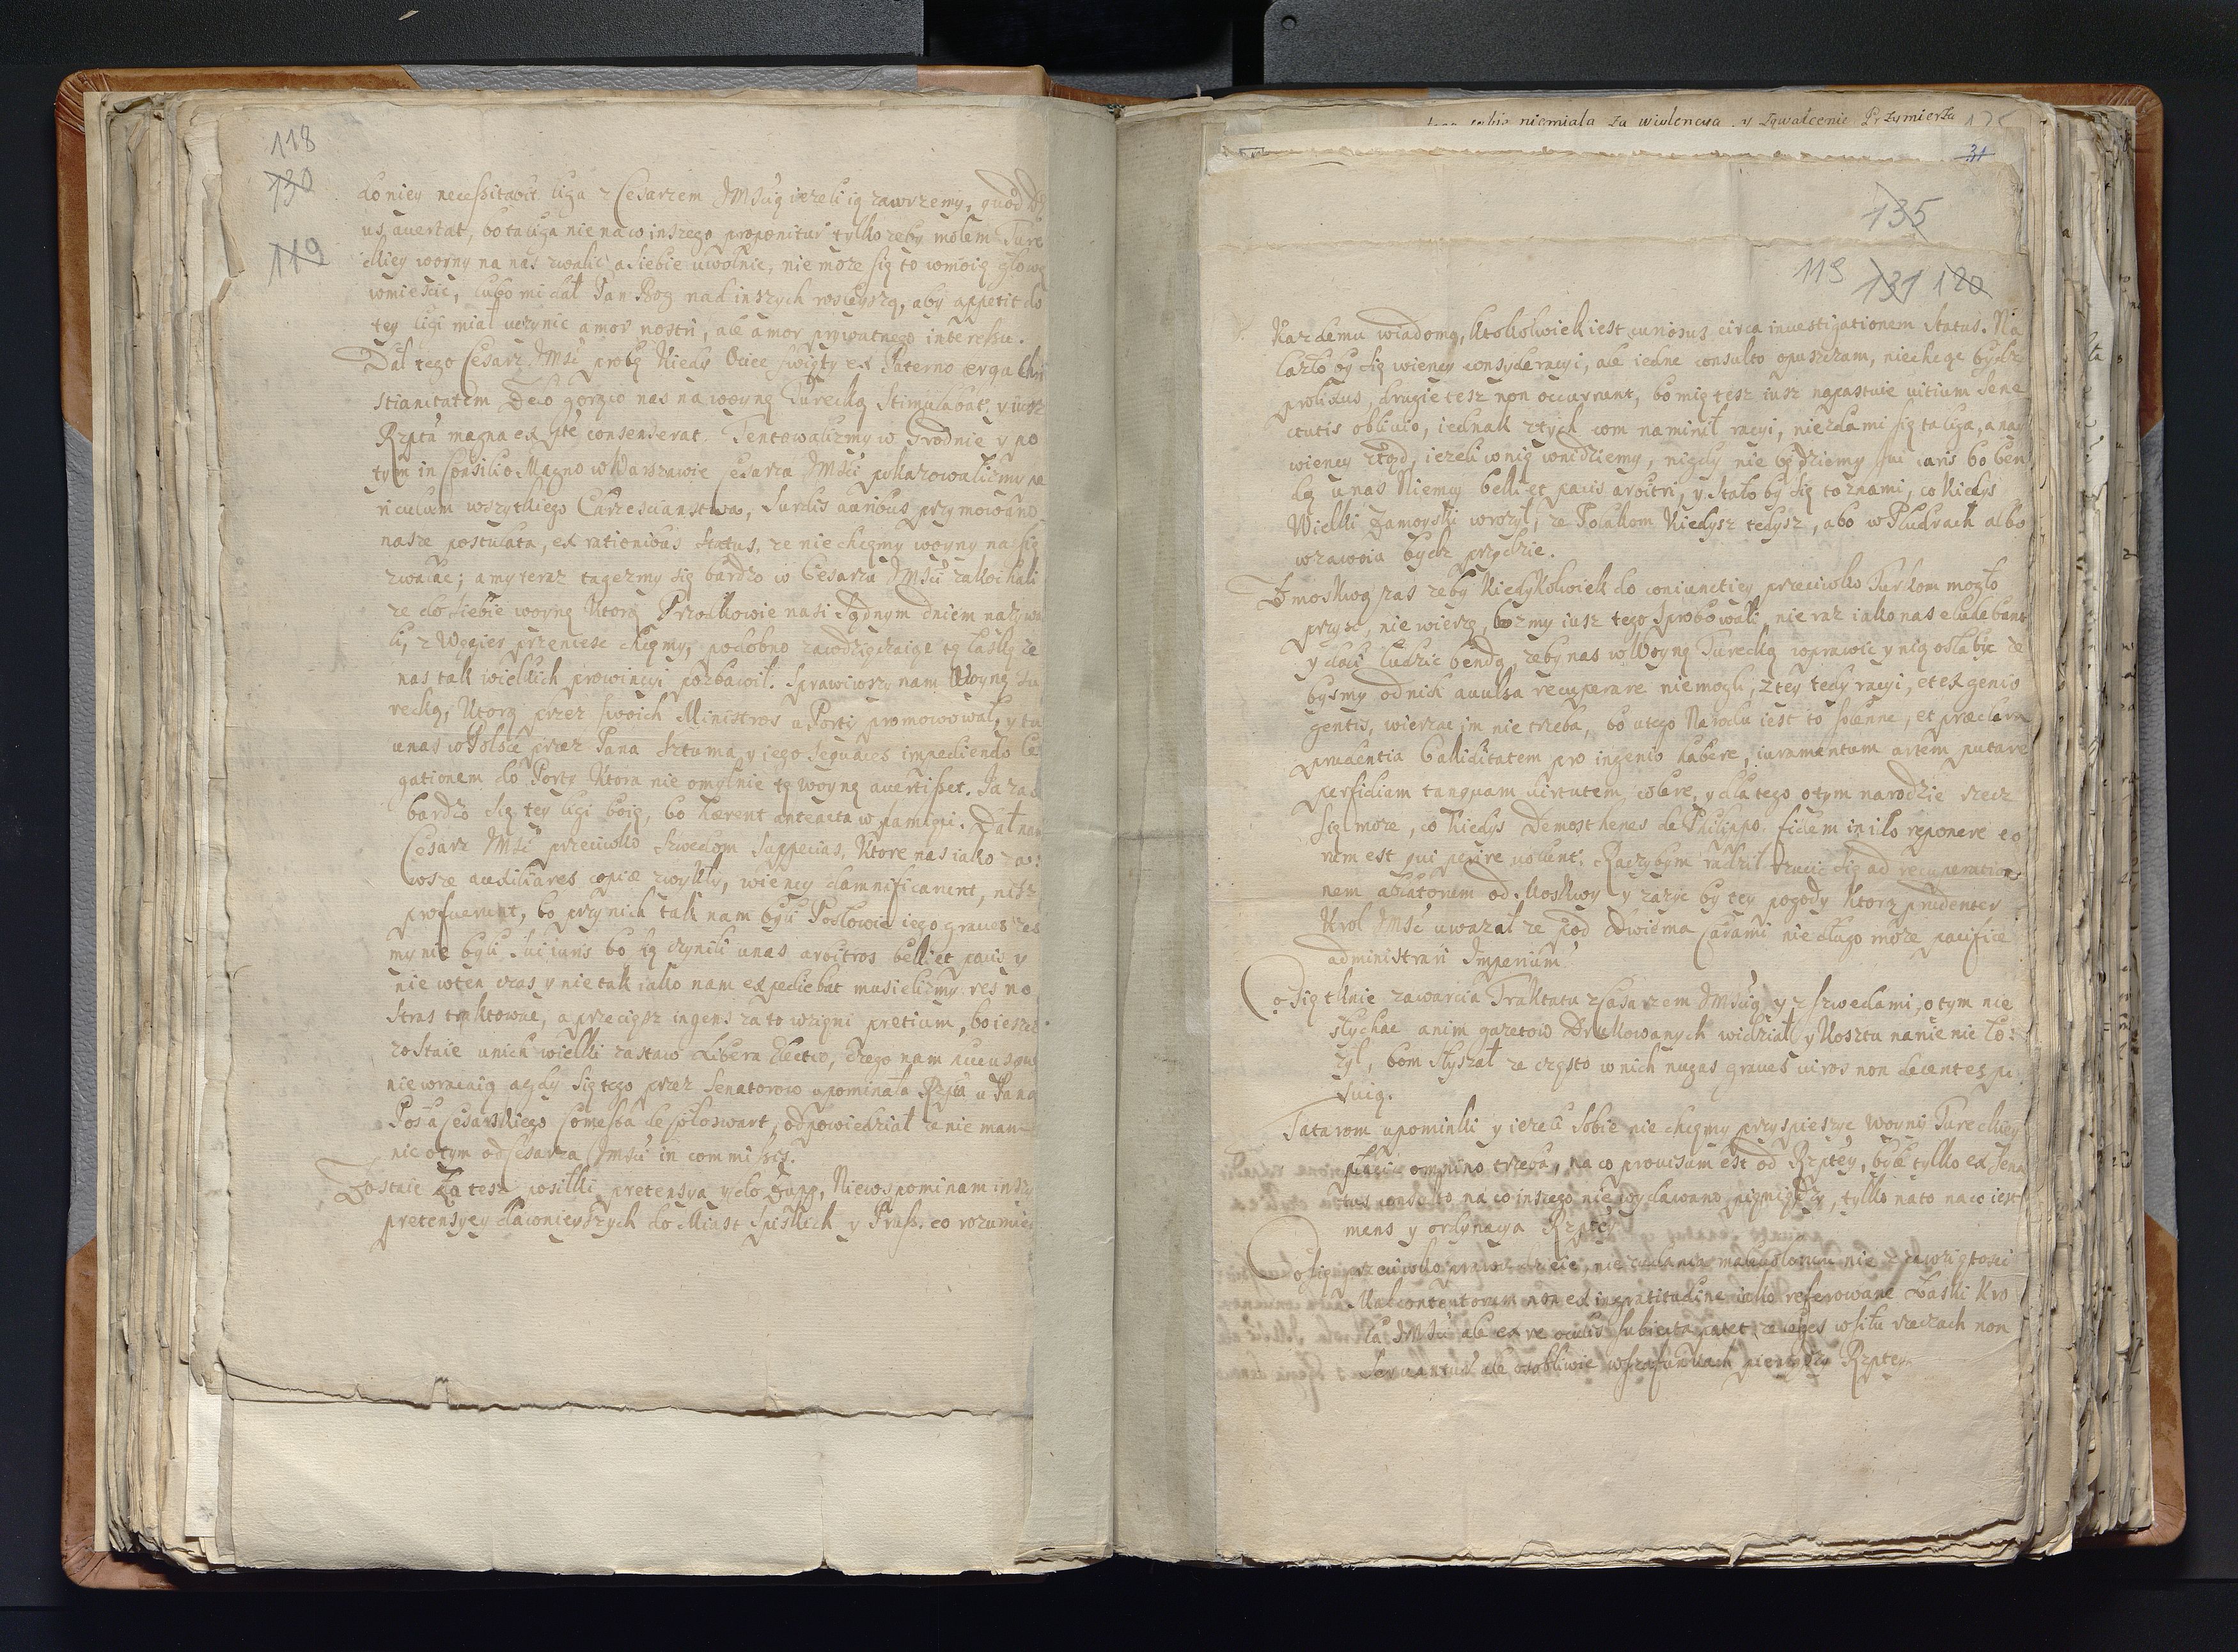 118
130
119
do niey necessitabit liga z Cesarzem JMścią ieżeli ią zawrzemy, quod De
us avertat, bo ta liga nie na co inszego proponitur tylko zeby molem Ture
ckiey woyny na nas zwalić a siebie uwolnic, nie moze się to w moię głowę
wmieścic, lubo mi dał Pan Bog nad inszych rosleyszą, aby appetit do
tey ligi miał uczynic amor nostri, ale amor prywatnego interessu.
Dał tego Cesarz JMsc probę kiedy Ociec swięty ex Paterno erga Chri
stianitatem Deo gorąco nas na woynę Turecką stimulabat, y iusz
Rzptа magna ex pte consenserat. Tentowalizmy w Grodnie y po
tym in Consilio Magno w Warszawie Cesarza JMści pokazowalizmy pe
riculum wszytkiego Chrzescianstwa, surdis auribus przymowano
nasze postulata, ex rationibus status, ze nie chcemy woyny na się
zwalac; a my teraz tagezmy się bardzo w Cesarzu JMsci zakochali
ze do siebie woynę ktorą Przodkowie nasi Sądnym dniem nazywa
li, z Węgier przeniesc chcemy, podobno zawdzięczaiąc tę łaskę ze
nas tak wielkich prowincyi pozbawił. Sprawiwszy nam Woynę Tu
recką, ktorą przez swoich Ministrow u Porty promowował, y tu
u nas w Polsce przez Pana Sztuma y iego sequaces impediendo le
gationem do Porty ktora nie omylnie tę woynę avertisset. Ja zas
bardzo się tey ligi boię, bo haerent anteacta w pamięci. Dał nam
Cesarz JMsc przeciwko Szwedom suppecias, ktore nas iako za-
wsze auxiliares copiae zwykły, wiency damnificarunt, nisz
profuerunt, bo przy nich tak nam byli Posłowie iego graves zes
my nie byli sui iuris bo się czynili u nas arbitros belli et pacis y
nie w ten czas y nie tak iako nam expediebat musielizmy res no
stras traktowac, a przeciesz ingens za to wzięni pretium, bo ieszcze
zostaie u nich wielki zastaw Libera Electio, czego nam
nie wracaią a gdy się tego przez Senatorow upominała Rzpta u Pana
Posła Cesarskiego Comesba de Soloswart, odpowiedział ze nie mam
nic o tym od Cesarza JMsci in commissis.
Zostaie za tesz posilki pretensya y do Zupp, Niewspominam inszy
pretensyey dawnieyszych do Miast Spiskich y Prass. co rozumiem
tego sobie niemiala za wiolencya, y zgwałcenie Przymierza
31
135
119 131 120
każdemu wiadomo, ktokolwiek iest curiosus circa investigationem status. Na
lazło by się wiency consyderacyi, ale iedne consulto opuszczam, niechcąc bydz
prolixus, drugie tesz non occurrunt, bo mię tesz iusz napastuie vitium sene
ctutis oblivio, iednak z tych com namienił racyi, niezda mi się ta liga, a nay
wiency ztąd, ieżeli w nię wnidziemy, nigdy nie będziemy sui iuris bo ben
dą u nas Niemcy belli et pacis arbitri, y stało by się to znami, co kiedys
Wielki Zamoyski wrozył, ze Polakom kiedysz tedysz, abo w Pludrach albo
w zawoiu bydz przydzie.
Z Moskwą zas zeby kiedykolwiek do coniunctiey przeciwko Turkom mogło
przysc, nie wierzę, bo zmy iusz tego sprobowali, nie raz iako nas eludebant
y dali ludzic bendą, zeby nas w Woynę Turecką wprawic y nią osłabic ze
bysmy od nich avulsa recuperare niemogli, z tey tedy racyi, et ex genio
gentis, wierzac im nie trzeba, bo u tego Narodu iest to solenne, et praeclara
prudentia Calliditatem pro ingenio habere, iuramentum artem putare
perfidiam tanquam virtutem colere, y dla tego o tym narodzie rzecz
się moze, co kiedys Demosthenes de Philippo. fidem in illo reponere eo
rum est qui perire volunt. Raczybym radził rzucic się ad recuperatio
nem ablatorum od Moskwy y zazyc by tey pogody ktorą prudenter
Krol JMsc uwazał ze pod dwiema Carami nie długo moze pacifice
administrari Imperium.
Co się tknie zawarcia Traktatu z Cesarzem JMscią y z Szwedami, o tym nie
słychac anim gazetow Drukowanych widział y kosztu na nie nie ło-
zył, bom słyszał ze często w nich nugas graves viros non decentes pi
suią.
Tatarom upominki y iezeli sobie nie chcemy przyspieszyc woyny Tureckiey
płacic omnino trzeba, na co provisum est od Rzptey, byle tylko ex Sena
tus consulto na co inszego nie wydawano pieniędzy, tylko na to na co iest
mens y ordynacya Rzptey.
Co się przeciwko prawu dzieie, nie
Malcontentorum non ex ingratitudine iako referowane Łaski Kro
la JMsci ale ex re oculis subiecta patet, ze leges wsitu rzeczach non
servantur ale osobliwie w szafunkach pieniędzy Rzptey